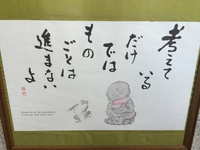 考えて
いる
だけ
では
もの
ごとは
進まない
よ